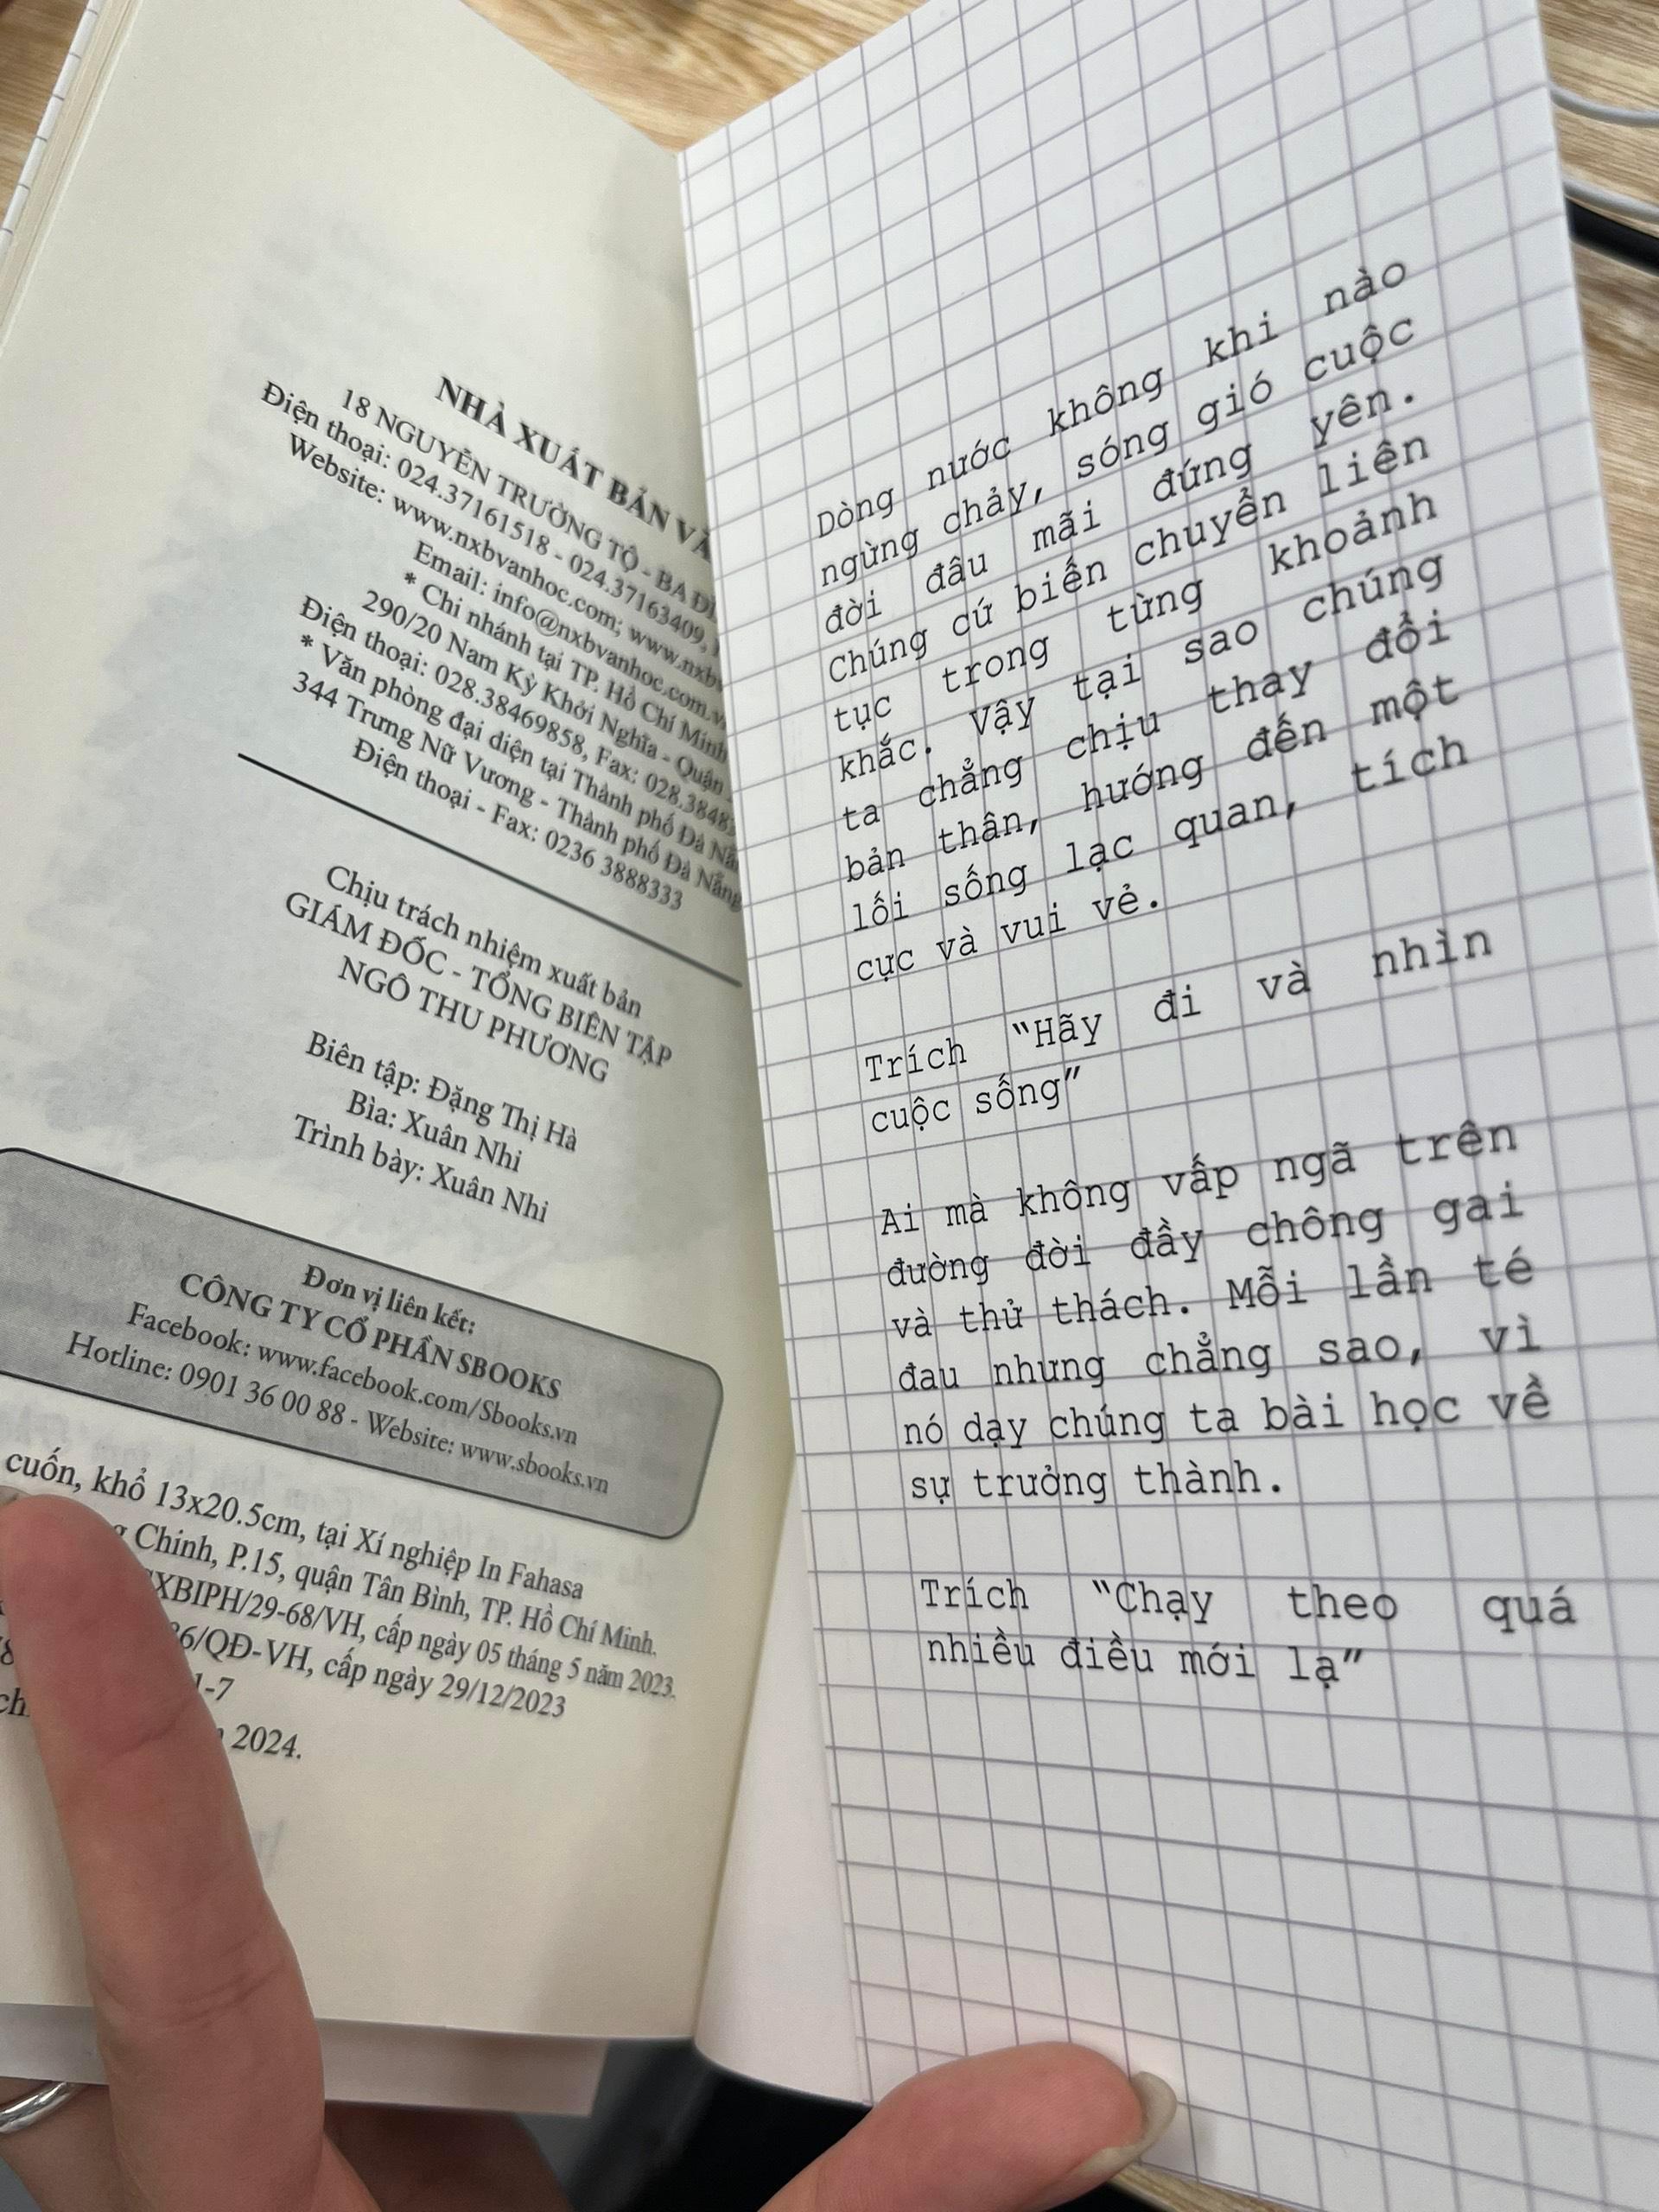 NHÀ XUẤT BẢN
18 NGUYỄN TRƯỜNG TỘ - BA
Điện thoại: 024.37161518 - 024.37163409,
Website: www.nxbvanhoc.com; www.nxbv
Email: info@nxbvanhoc.com.v
* Chi nhánh tại TP. Hồ Chí Minh
290/20 Nam Kỳ Khởi Nghĩa - Quận
Điện thoại: 028.38469858, Fax: 028.3848
* Văn phòng đại diện tại Thành phố Đà
344 Trưng Nữ Vương - Thành phố Đà Nẵng
Điện thoại - Fax: 0236 3888333
Chịu trách nhiệm xuất bản
GIÁM ĐỐC - TỔNG BIÊN TẬP
NGÔ THU PHƯƠNG
Biên tập: Đặng Thị Hà
Bìa: Xuân Nhi
Trình bày: Xuân Nhi
Đơn vị liên kết:
CÔNG TY CỔ PHẦN SBOOKS
Facebook: www.facebook.com/Sbooks.vn
Hotline: 0901 36 00 88 - Website: www.sbooks.vn
cuốn, khổ 13x20.5cm, tại Xí nghiệp In Fahasa
Chinh, P.15, quận Tân Bình, TP. Hồ Chí Minh.
XBIPH/29-68/VH, cấp ngày 05 tháng 5 năm 2023.
86/QĐ-VH, cấp ngày 29/12/2023
1-7
2024.
Dòng nước không khi nào
ngừng chảy, sóng gió cuộc
đời đâu mãi đứng yên.
Chúng cứ biến chuyển liên
tục trong từng khoảnh
khắc. Vậy tại sao chúng
ta chẳng chịu thay đổi
bản thân, hướng đến một
lối sống lạc quan, tích
cực và vui vẻ.
Trích “Hãy đi và nhìn
cuộc sống”
Ai mà không vấp ngã trên
đường đời đầy chông gai
và thử thách. Mỗi lần té
đau nhưng chẳng sao, vì
nó dạy chúng ta bài học về
sự trưởng thành.
Trích “Chạy theo quá
nhiều điều mới lạ”